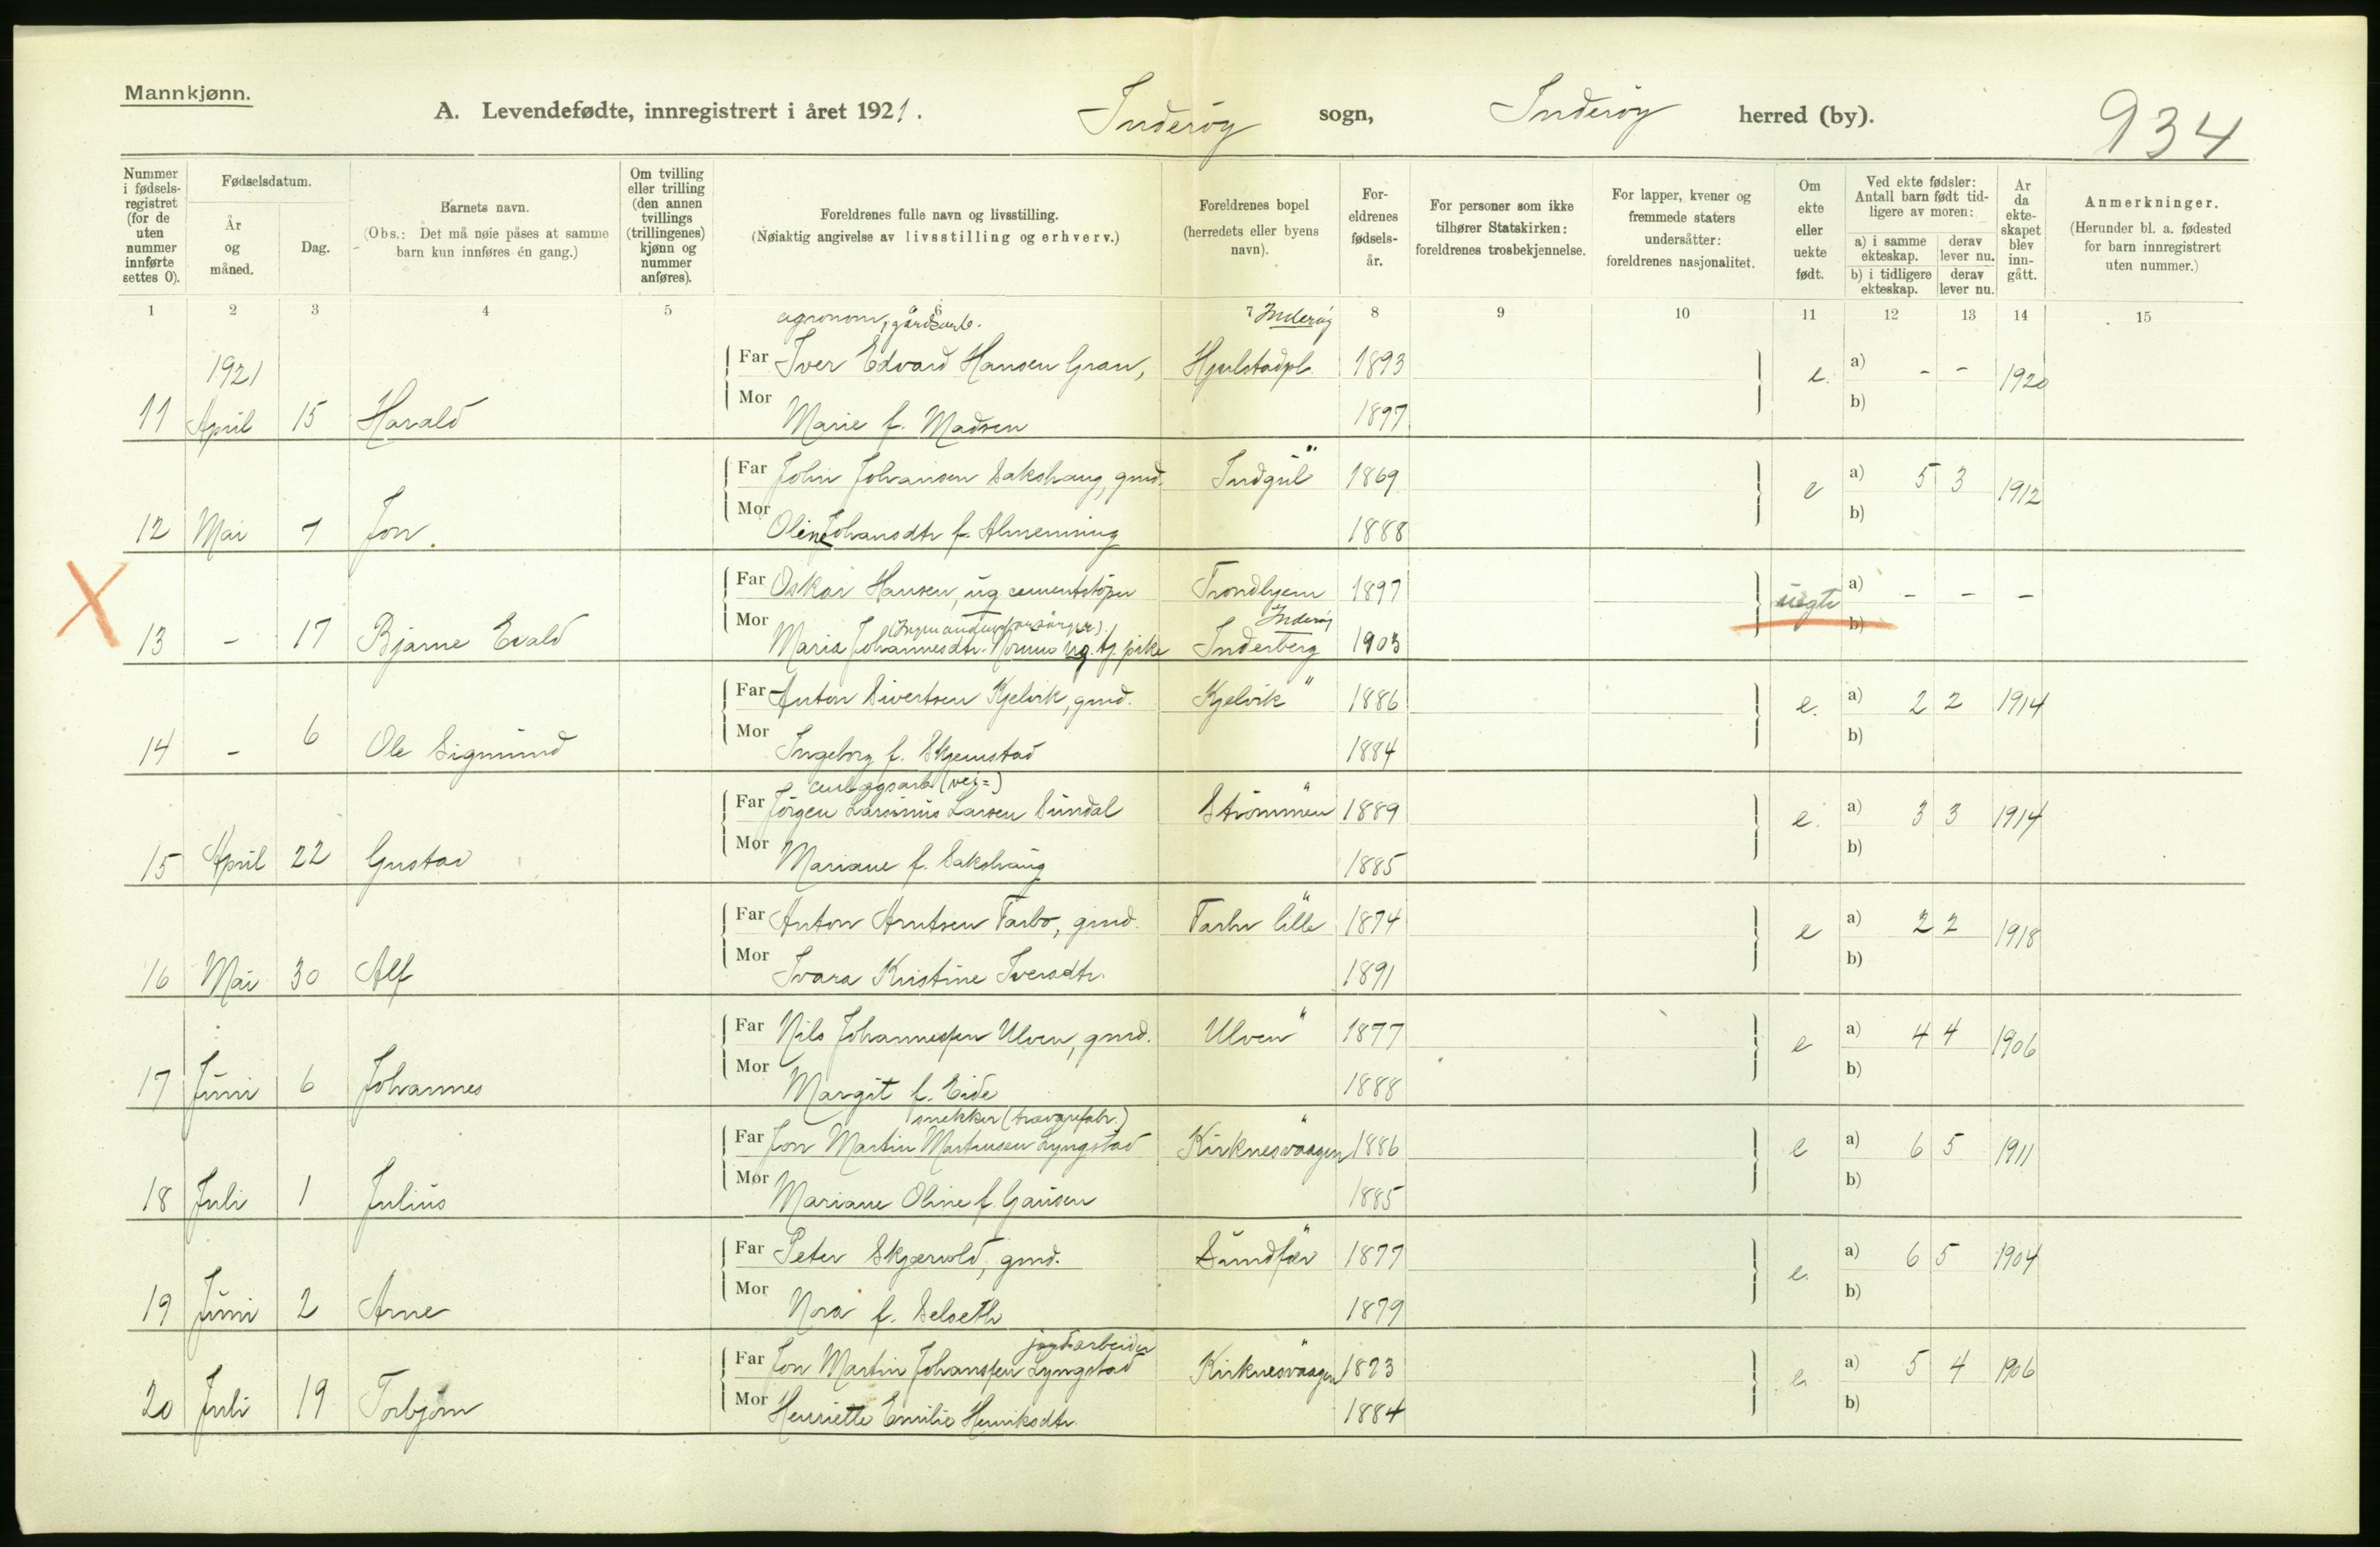 Mannkjønn.
A. Levendefødte, innregistrert i året 1921. Inderøy sogn, Inderøy herred (by). 934
Nummer i fødselsregistret (for de uten nummer innførte settes 0).
Fødselsdatum.
År og måned.
Dag.
Barnets navn.
(Obs.: Det må nøie påses at samme barn kun innføres én gang.)
Om tvilling eller trilling (den annen tvillings (trillingenes) kjønn og nummer anføres).
Foreldrenes fulle navn og livsstilling.
(Nøiaktig angivelse av livsstilling og erhverv.)
Foreldrenes bopel (herredets eller byens navn).
Foreldrenes fødselsår.
For personer som ikke tilhører Statskirken: foreldrenes trosbekjennelse.
For lapper, kvener og fremmede staters undersåtter: foreldrenes nasjonalitet.
Om ekte eller uekte født.
Ved ekte fødsler: Antall barn født tidligere av moren:
a) i samme ekteskap. derav lever nu.
b) i tidligere ekteskap. derav lever nu.
År da ekteskapet blev inngått.
Anmerkninger.
(Herunder bl. a. fødested for barn innregistrert uten nummer.)
1 2 3 4 5 6 7 8 9 10 11 12 13 14 15
agronom, gårdsarb. Inderøy
1921 Far Iver Edvard Hansen Gran, Hjulstadpl. 1893 e. a) - - 1920
11 April 15 Harald Mor Marie f. Madsen 1897 b)
Far John Johansen Sakshaug, gmd. Indgül " 1869 e a) 5 3 1912
12 Mai 7 Jon. Mor Oline Johansdtr f. Almenning 1888 b)
Far Oskar Hansen, ug. cementstøper Trondhjem 1897 uegte a) - - -
Inderøy
X 13 - 17 Bjarne Evald Mor Maria Johannesdtr. ug. tj. pike Inderberg 1903 b)
Far Anton Sivertsen Kjelvik, gmd. Kjelvik " 1886 e. a) 2 2 1914
14 - 6 Ole Sigmund Mor Ingeborg f. Skjemstad 1884 b)
anlægsarb (vei=)
Far Jørgen Larsinus Larsen Sundal Strømmen " 1889 e. a) 3 3 1914
15 April 22 Gustav Mor Mariane f. Sakshaug 1885 b)
Far Anton Arntsen Tarbo, gmd. Tarbu lille " 1874 e a) 2 2 1918
16 Mai 30 Alf Mor Ivara Kristine Iversdtr. 1891 b)
Far Nils Johannessen Ulven, gmd. Ulven " 1877 e a) 4 4 1906
17 Juni 6 Johannes Mor Margit f. Eide 1888 b)
snekker (trævarefabr.)
Far Jon Martin Martinsen Lyngstad Kirknesvaagen " 1886 e a) 6 5 1911
18 Juli 1 Julius Mor Mariane Oline f. Gausen 1885 b)
Far Peter Skjervold, gmd. Sundfær " 1877 e. a) 6 5 1904
19 Juni 2 Arne Mor Nora f. Selseth 1879 b)
jordarbeider
Far Jon Martin Johanssen Lyngstad Kirknesvaagen " 1873 e. a) 5 4 1906
20 Juli 19 Torbjørn Mor Henriette Emilie Henriksdtr 1884 b)